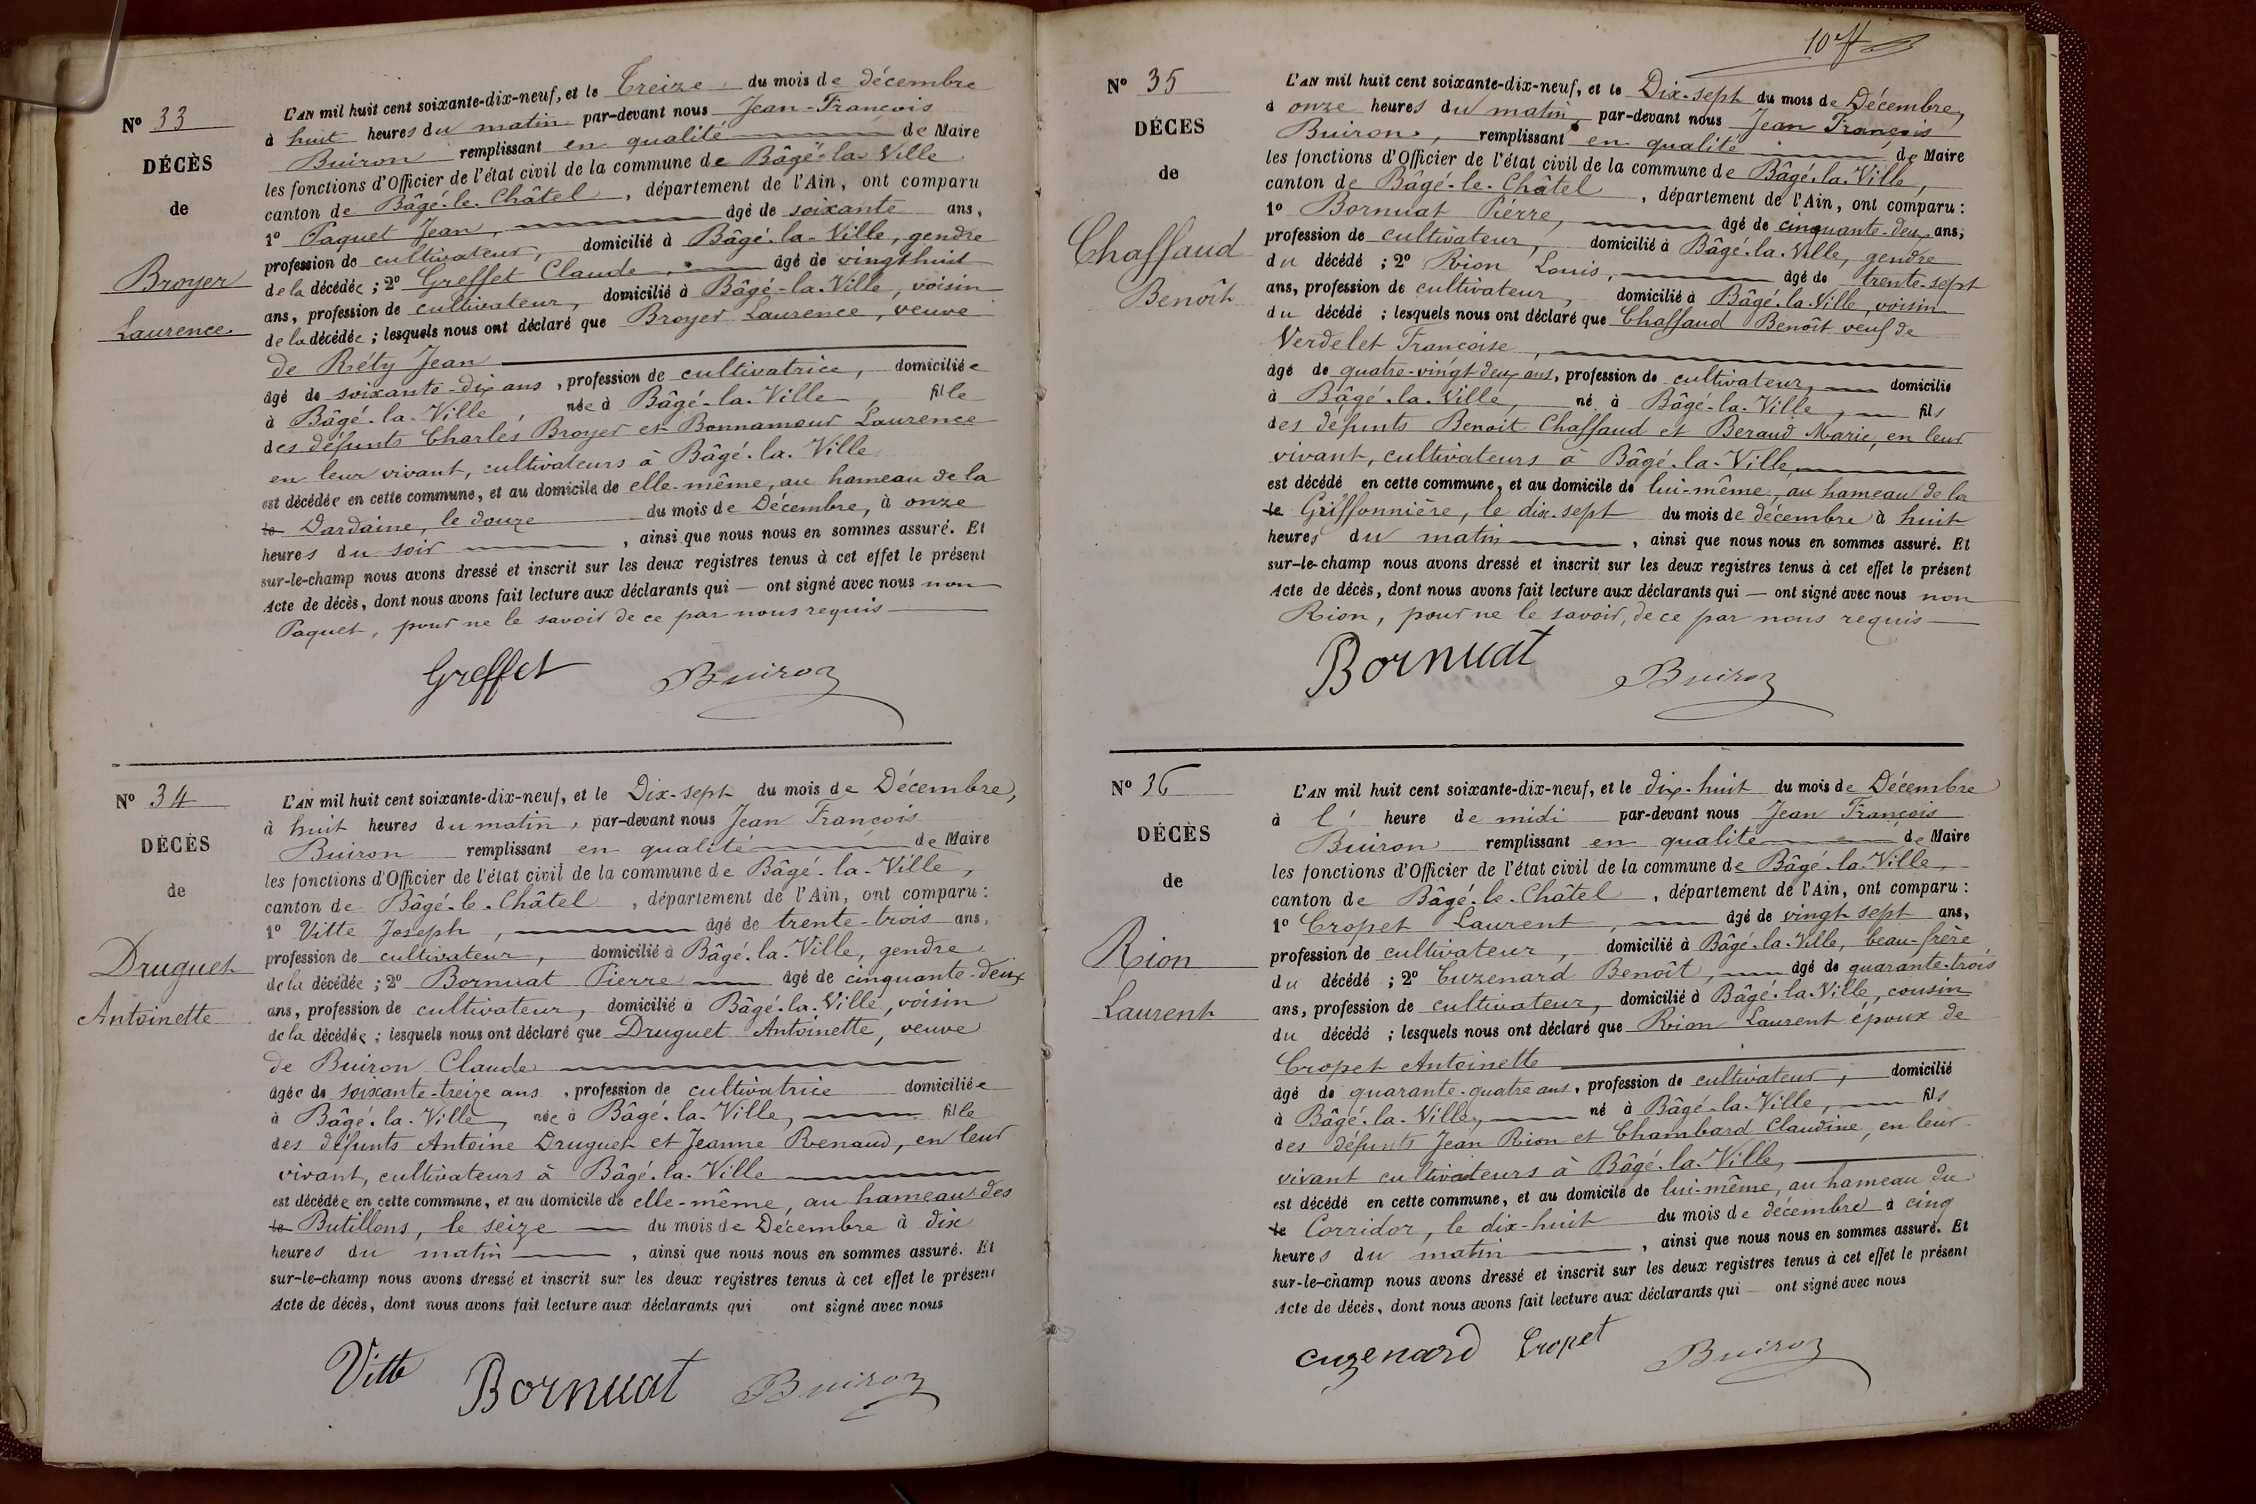 N° 33
DÉCÈS
de
Broyer
Laurence
L'AN mil huit cent soixante-dix-neuf, et le Treize du mois de décembre
à huit heures du matin par-devant nous Jean-François
Buiron remplissant en qualité de Maire
les fonctions d'Officier de l'état civil de la commune de Bâgé-la-Ville
canton de Bâgé-le-Châtel, département de l'Ain, ont comparu
1° Paquet Jean, âgé de soixante ans,
profession de cultivateur, domicilié à Bâgé-la-Ville, gendre
de la décédée ; 2° Greffet Claude, âgé de vingt huit
ans, profession de cultivateur, domicilié à Bâgé-la-Ville, voisin
de la décédée ; lesquels nous ont déclaré que Broyer Laurence, veuve
de Réty Jean
âgé de soixante-dix ans, profession de cultivatrice, domiciliée
à Bâgé-la-Ville, née à Bâgé-la-Ville, fille
des défunts Charles Broyer et Bonnamour Laurence
en leur vivant, cultivateurs à Bâgé-la-Ville
est décédée en cette commune, et au domicile de elle-même, au hameau de la
le Dardaine, le douze du mois de Décembre, à onze
heures du soir, ainsi que nous nous en sommes assuré. Et
sur-le-champ nous avons dressé et inscrit sur les deux registres tenus à cet effet le présent
Acte de décès, dont nous avons fait lecture aux déclarants qui — ont signé avec nous non
Paquet, pour ne le savoir de ce par nous requis
Greffet Buiron
N° 34
DÉCÈS
de
Druguet
Antoinette
L'AN mil huit cent soixante-dix-neuf, et le Dix-sept du mois de Décembre,
à huit heures du matin, par-devant nous Jean François
Buiron remplissant en qualité de Maire
les fonctions d'Officier de l'état civil de la commune de Bâgé-la-Ville,
canton de Bâgé-le-Châtel, département de l'Ain, ont comparu :
1° Vitte Joseph, âgé de trente-trois ans,
profession de cultivateur, domicilié à Bâgé-la-Ville, gendre
de la décédée ; 2° Bornuat Pierre âgé de cinquante-deux
ans, profession de cultivateur, domicilié à Bâgé-la-Ville, voisin
de la décédée ; lesquels nous ont déclaré que Druguet Antoinette, veuve
de Buiron Claude
âgée de soixante-treize ans, profession de cultivatrice domiciliée
à Bâgé-la-Ville, née à Bâgé-la-Ville, fille
des défunts Antoine Druguet et Jeanne Renaud, en leur
vivant, cultivateurs à Bâgé-la-Ville
est décédée en cette commune, et au domicile de elle-même, au hameau des
le Butillons, le seize du mois de Décembre à dix
heures du matin, ainsi que nous nous en sommes assuré. Et
sur-le-champ nous avons dressé et inscrit sur les deux registres tenus à cet effet le présent
Acte de décès, dont nous avons fait lecture aux déclarants qui ont signé avec nous
Vitte Bornuat Buiron
N° 35
DÉCES
de
Chaffaud
Benoît
L'AN mil huit cent soixante-dix-neuf, et le Dix-sept du mois de Décembre,
à onze heures du matin, par-devant nous Jean François
Buiron, remplissant en qualité de Maire
les fonctions d'Officier de l'état civil de la commune de Bâgé-la-Ville,
canton de Bâgé-le-Châtel, département de l'Ain, ont comparu :
1° Bornuat Pierre, âgé de cinquante-deux ans,
profession de cultivateur, domicilié à Bâgé-la-Ville, gendre
du décédé ; 2° Rion Louis, âgé de trente-sept
ans, profession de cultivateur, domicilié à Bâgé-la-Ville, voisin
du décédé ; lesquels nous ont déclaré que Chaffaud Benoît veuf de
Verdelet Françoise,
âgé de quatre-vingt-deux ans, profession de cultivateur, domicilié
à Bâgé-la-Ville, né à Bâgé-la-Ville, fils
des défunts Benoit Chaffaud et Beraud Marie, en leur
vivant, cultivateurs à Bâgé-la-Ville
est décédé en cette commune, et au domicile de lui-même, au hameau de la
le Griffonnière, le dix-sept du mois de décembre à huit
heures du matin, ainsi que nous nous en sommes assuré. Et
sur-le-champ nous avons dressé et inscrit sur les deux registres tenus à cet effet le présent
Acte de décès, dont nous avons fait lecture aux déclarants qui — ont signé avec nous non
Rion, pour ne le savoir, de ce par nous requis
Bornuat Buiron
N° 36
DÉCÈS
de
Rion
Laurent
L'AN mil huit cent soixante-dix-neuf, et le dix-huit du mois de Décembre
à l' heure de midi par-devant nous Jean François
Buiron remplissant en qualité de Maire
les fonctions d'Officier de l'état civil de la commune de Bâgé-la-Ville,
canton de Bâgé-le-Châtel, département de l'Ain, ont comparu :
1° Cropet Laurent, âgé de vingt sept ans,
profession de cultivateur, domicilié à Bâgé-la-Ville, beau-frère
du décédé ; 2° Cuzenard Benoît, âgé de quarante-trois
ans, profession de cultivateur, domicilié à Bâgé-la-Ville, cousin
du décédé ; lesquels nous ont déclaré que Rion Laurent époux de
Cropet Antoinette
âgé de quarante-quatre ans, profession de cultivateur, domicilié
à Bâgé-la-Ville, né à Bâgé-la-Ville, fils
des défunts Jean Rion et Chambard Claudine, en leur
vivant cultivateurs à Bâgé-la-Ville,
est décédé en cette commune, et au domicile de lui-même, au hameau du
le Corridor, le dix-huit du mois de décembre à cinq
heures du matin, ainsi que nous nous en sommes assuré. Et
sur-le-champ nous avons dressé et inscrit sur les deux registres tenus à cet effet le présent
Acte de décès, dont nous avons fait lecture aux déclarants qui — ont signé avec nous
Cuzenard Cropet Buiron